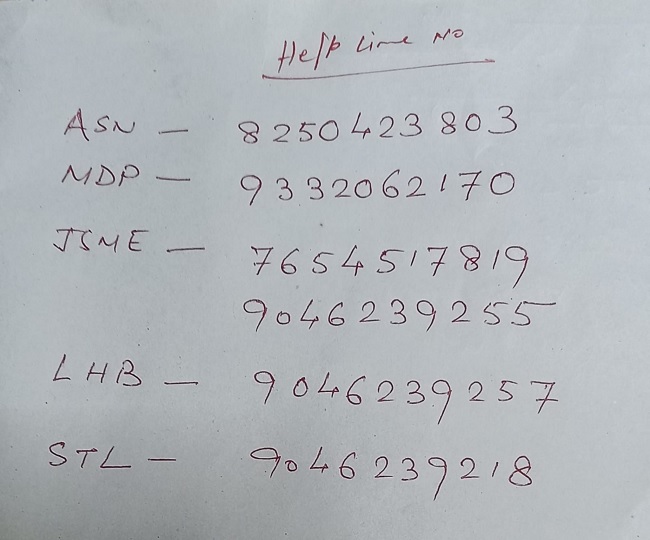 Help Line No
ASN - 8250423803
MDP - 9332062170
JSME - 7654517819
9046239255
LHB - 9046239257
STL - 9046239218